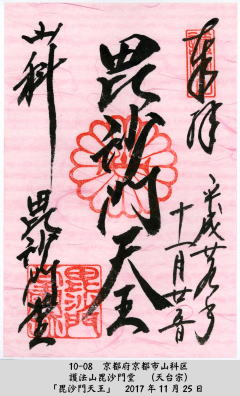 奉拝
平成廿九年
十一月廿五日
毘沙門天王
山科 毘沙門堂
毘沙門
10-08 京都府京都市山科区
護法山毘沙門堂 (天台宗)
「毘沙門天王」 2017年11月25日